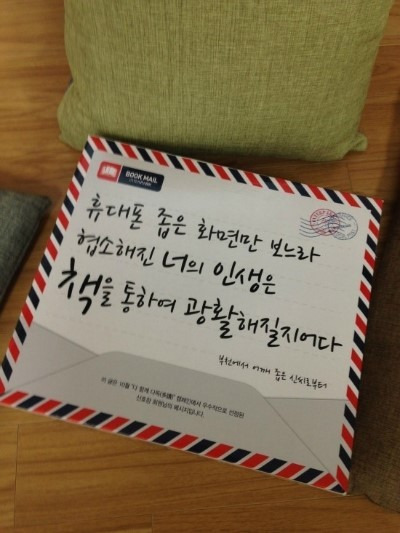 BOOK MAIL
휴대폰 좁은 화면만 보느라
협소해진 너의 인생은
책을 통하여 광활해질지어다
부천에서 어깨 좁은 신씨로부터
이 글은 10월 "다 함께 다독(多讀)" 캠페인에서 우수작으로 선정된
신호창 회원님의 메시지입니다.